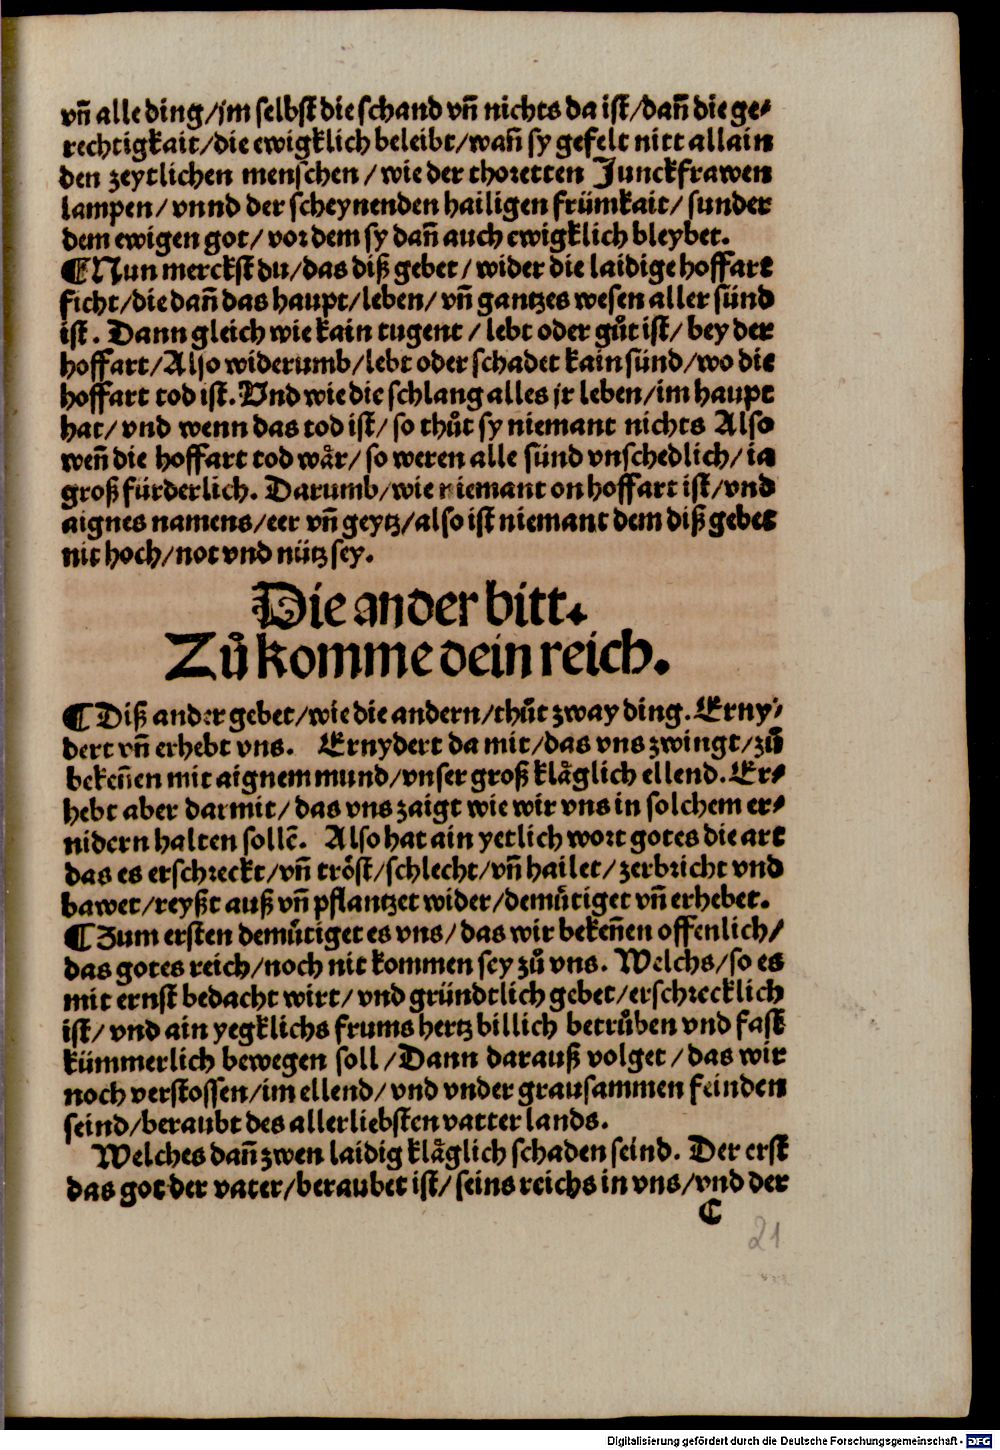 vñ alle ding/im selbst die schand vñ nichts da ist/dañ die ge⸗
rechtigkait/die ewigklich beleibt/wañ sy gefelt nitt allain
den zeytlichen menschen/wie der thoretten Junckfrawen
lampen/vnnd der scheynenden hailigen frümkait/sunder
dem ewigen got/vor dem sy dañ auch ewigklich bleybet.
¶Nun merckst du/das diß gebet/wider die laidige hoffart
ficht/die dañ das haupt/leben/vñ gantzes wesen aller sünd
ist. Dann gleich wie kain tugent/lebt oder gůt ist/bey der
hoffart/Also widerumb/lebt oder schadet kain sünd/wo die
hoffart tod ist. Vnd wie die schlang alles jr leben/im haupt
hat/vnd wenn das tod ist/so thůt sy niemant nichts Also
weñ die hoffart tod wår/so weren alle sünd vnschedlich/ia
groß fürderlich. Darumb/wie niemant on hoffart ist/vnd
aignes namens/eer vñ geytz/also ist niemant dem diß gebet
nit hoch/not vnd nütz sey.
Die ander bitt.
Zů komme dein reich.
¶Diß ander gebet/wie die andern/thůt zway ding. Erny⸗
dert vñ erhebt vns. Ernydert da mit/das vns zwingt/zů
bekeñen mit aignem mund/vnser groß klåglich ellend. Er⸗
hebt aber darmit/das vns zaigt wie wir vns in solchem er⸗
nidern halten sollē. Also hat ain yetlich wort gotes die art
das es erschreckt/vñ tröst/schlecht/vñ hailet/zerbricht vnd
bawet/reyßt auß vñ pflantzet wider/demůtiget vñ erhebet.
¶Zum ersten demůtiget es vns/das wir bekeñen offenlich/
das gotes reich/noch nit kommen sey zů vns. Welchs/so es
mit ernst bedacht wirt/vnd gründtlich gebet/erschrecklich
ist/vnd ain yegklichs frums hertz billich betrůben vnd fast
kümmerlich bewegen soll/Dann darauß volget/das wir
noch verstossen/im ellend/vnd vnder grausammen feinden
seind/beraubt des allerliebsten vatter lands.
Welches dañ zwen laidig klåglich schaden seind. Der erst
das got der vater/beraubet ist/seins reichs in vns/vnd der
C
21
Digitalisierung gefördert durch die Deutsche Forschungsgemeinschaft - DFG